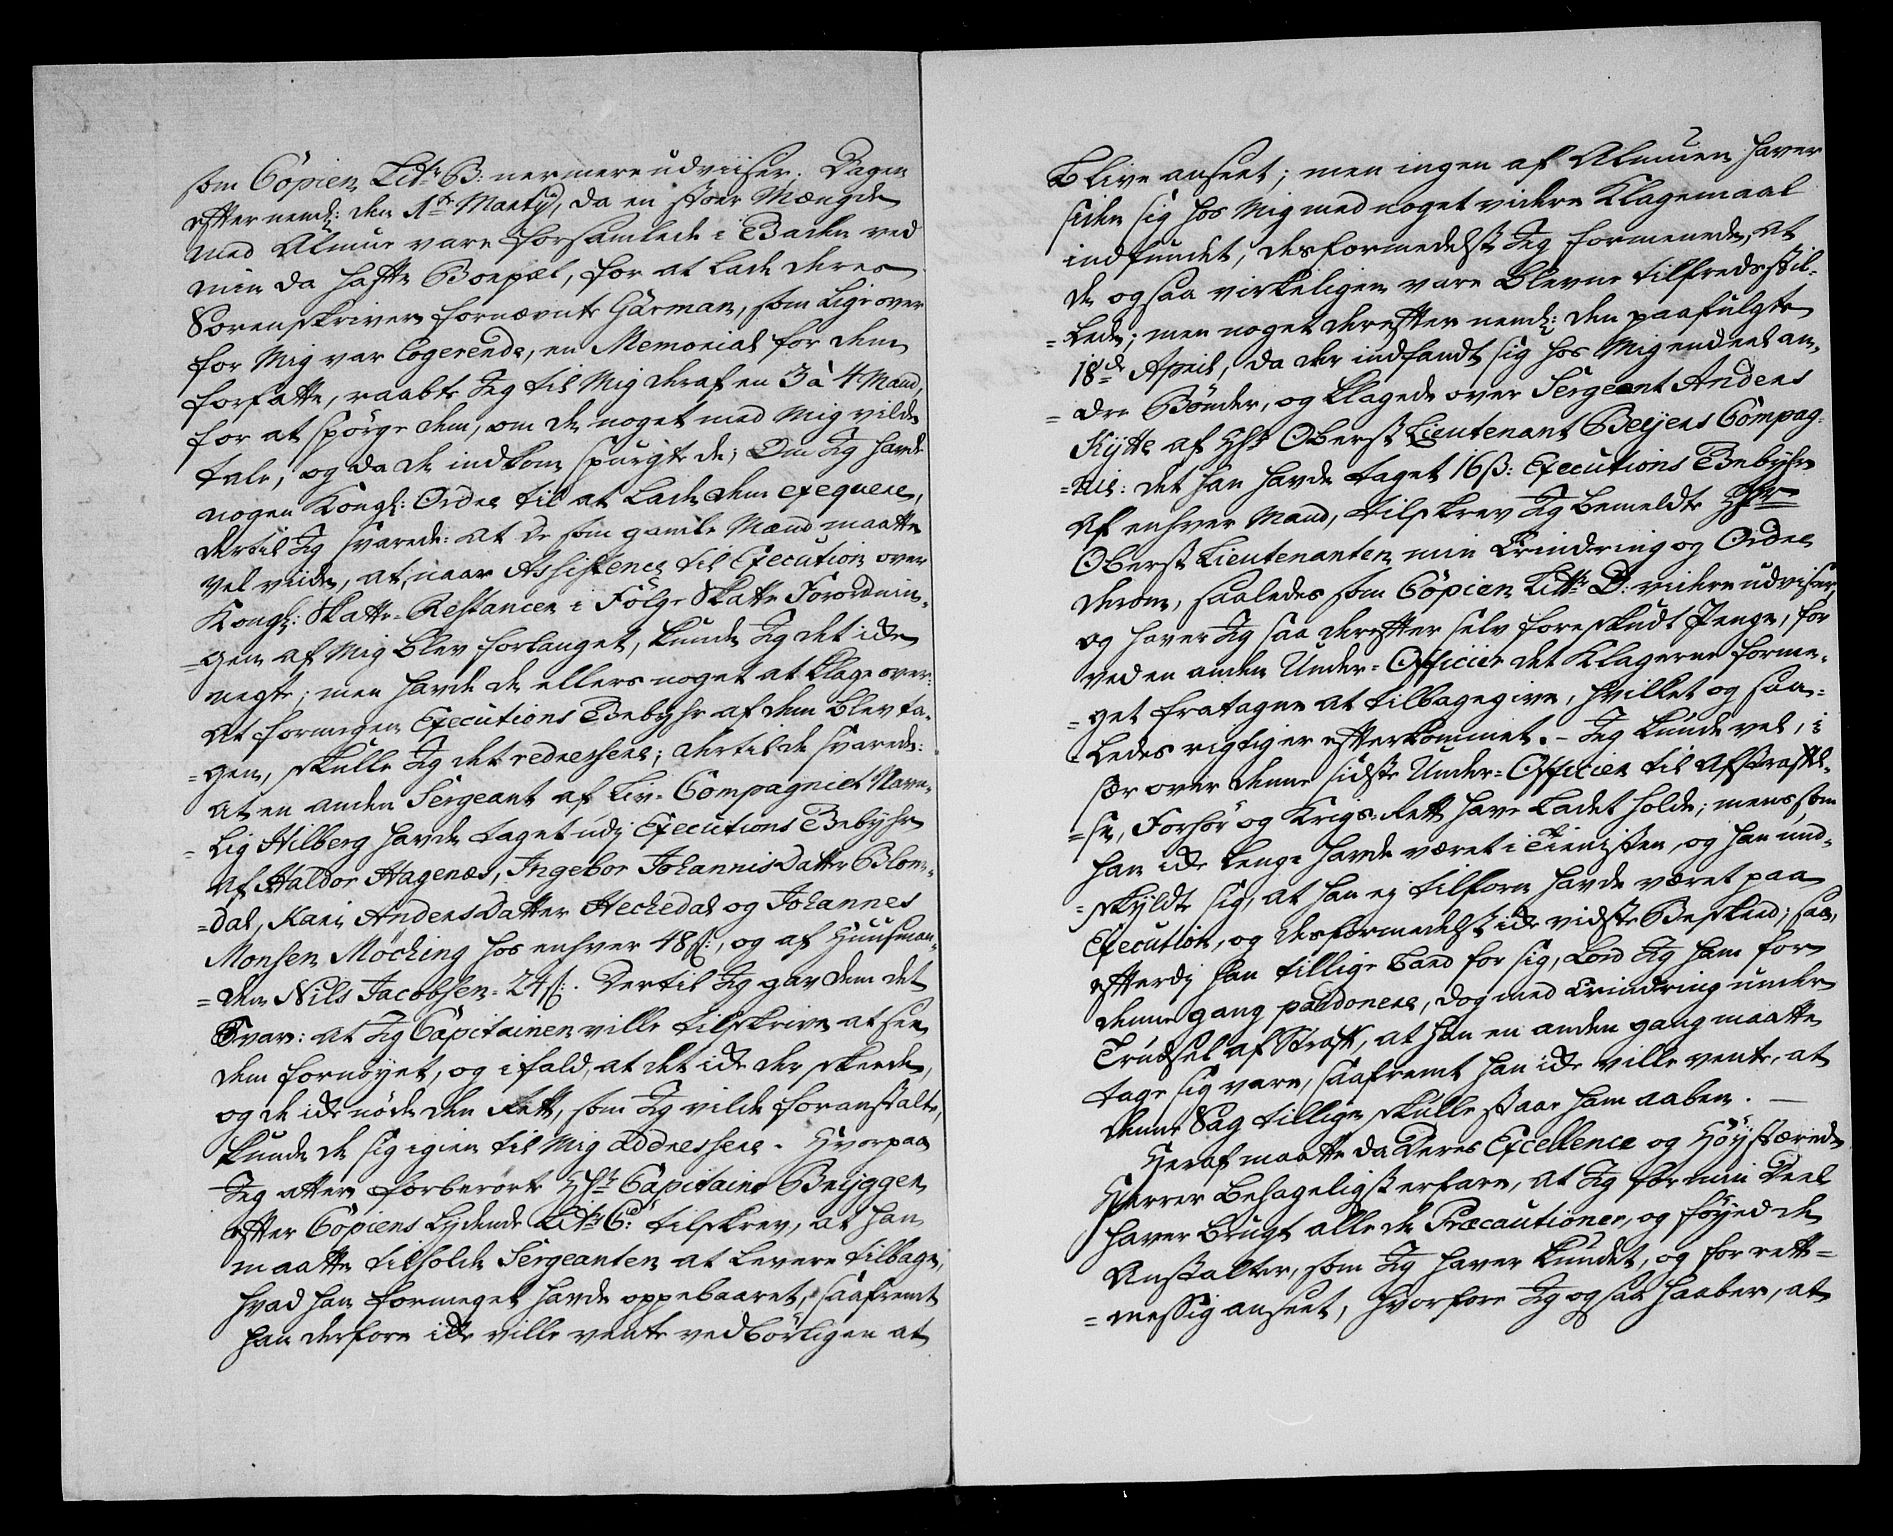 som Copien Litr: B: nermere udviiser. Dagen
efter neml: den 1te Martÿ, da en stoer Mængde
med Almue vare forsamlede i Baden ved
min da hafte Boepæl, for at lade deres
Sorenskriver fornævnte Garman, som lige over
for Mig var logerende, en Memorial for dem
forfatte, raabte Jeg til Mig deraf en 3 à 4 Mand,
for at spørge dem, om de noget med Mig vilde
tale, og da de indkom spurgte de; Om Jeg havde
nogen Kongl: Ordre til at lade dem exeqvere,
dertil Jeg svarede: at de som gamle Mænd maatte
vel viide, at, naar Assistence til Execution over
Kongl: Skatte-Restancer i Følge Skatte Forordnin-
=gen af Mig blev forlanget, kunde Jeg det icke
negte; men havde de ellers noget at klage over:
At formegen Executions Gebyhr af dem blev ta-
=gen, skulle Jeg det redressere; dertil de svarede:
at en anden Sergeant af Liv-Compagniet Navn-
=lig Hilberg havde taget udj Executions Gebyhr
af Haldor Hagenæs, Ingebor Johannis Datter Blom-
=dal, Kari Anders Datter Hechedal og Johannes
Monsen Möching hos enhver 48 ß:, og af Huusman-
=den Nils Jacobsen 24 ß:. Dertil Jeg gav dem det
Svar: at Jeg Capitainen ville tilskrive at see
dem fornøyet, og ifald, at det icke der skeede,
og de icke nöde den Rett, som Jeg vilde foranstalte,
kunde de sig igien til Mig addressere. Hvorpaa
Jeg atter forberørte Hr: Capitaine Brÿggen
efter Copiens lydende Litr: C: tilskrev, at han
maatte tilholde Sergeanten at levere tilbage,
hvad han formeget havde oppebaaret, saafremt
han derfore icke ville vente vedbörligen at
blive anseet; men ingen af Almuen haver
siden sig hos Mig med noget videre Klagemaal
indfundet, desformedelst Jeg formenede, at
de ogsaa virkeligen vare blevne tilfredsstil-
=lede; men noget derefter neml: den paafulgte
18de April, da der indfandt sig hos Mig endeel an-
=dre Bønder, og klagede over Sergeant Anders
Kÿtte af Hr: Oberst Lieutenant Beÿers Compag-
=nie: det han havde taget 16 ß: Executions Gebyhr
af enhver Mand, tilskrev Jeg bemeldte Hr:
Oberst Lieutenanten min Erindring og Ordre
derom, saaledes som Copien Litr: D: videre udviser,
og haver Jeg saa derefter selv foreskudt Penge, for
ved en anden Under-Officier det Klagerne forme-
=get fratagne at tilbagegive, hvilket og saa-
=ledes rigtig er efterkommet. - Jeg kunde vel, i-
sær over denne sidste Under-Officier til Afstraffel-
=se, Forhør og Krigs-Rett have ladet holde; mens, som
han icke lenge havde været i Tienisten, og han und-
=skyldte sig, at han ej tilforn havde været paa
Execution, og desformedelst icke vidste Beskeed; saa,
efterdj han tillige bad for sig, lod Jeg ham for
denne gang pardonere, dog med Erindring under
Trudsel af Straff, at han en anden gang maatte
tage sig vare, saafremt han icke ville vente, at
denne Sag tilligen skulle staae ham aaben. —
Heraf maatte da Deres Excellence og Høystærede
Herrer behageligst erfare, at Jeg for min Deel
haver brugt alle de Præcautioner, og føyed de
Anstalter, som Jeg haver kundet, og for rett-
=messig anseet, hvorfore Jeg ogsaa haaber, at